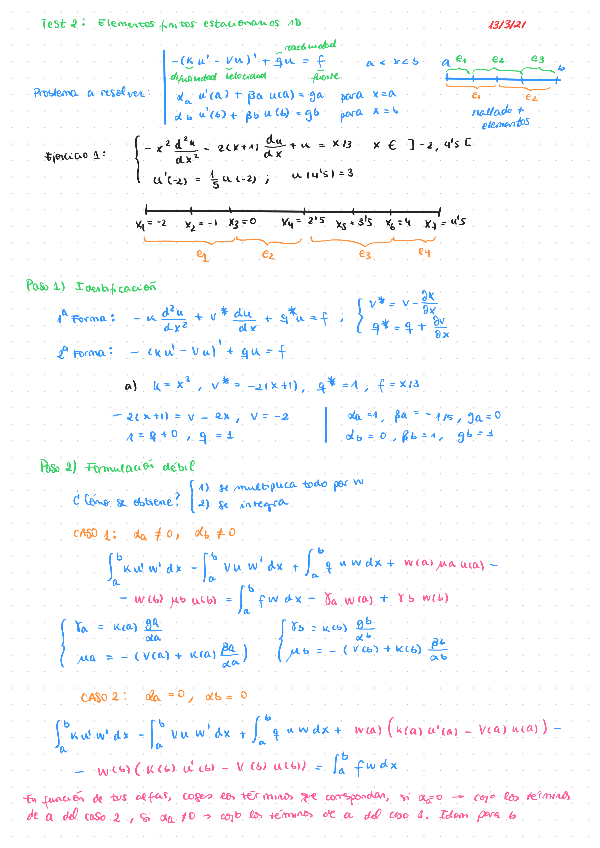 Test 2: Elementos finitos estacionarios 1D
13/3/21
reactividad
-(k u' - vu)' + qu = f    a < x < b
difusividad velocidad fuente
a e1 e2 e3 b
e1 e2
mallado + elementos
Problema a resolver:
αa u'(a) + βa u(a) = ga para x=a
αb u'(b) + βb u(b) = gb para x=b
Ejercicio 1: -x² d²u/dx² - 2(x+1) du/dx + u = x/3    x ∈ ]-2, 4'5[
u'(-2) = 1/5 u(-2) ; u(4'5) = 3
x1=-2 x2=-1 x3=0 x4=2'5 x5=3'5 x6=4 x7=4'5
e1 e2 e3 e4
Paso 1) Identificación
1ª Forma: -k d²u/dx² + v* du/dx + q*u = f ; { v* = v - ∂k/∂x
q* = q + ∂v/∂x
2ª Forma: -(ku' - vu)' + qu = f
a) k = x², v* = -2(x+1), q* = 1, f = x/3
-2(x+1) = v - 2x, v = -2
αa=1, βa = -1/5, ga=0
1 = q + 0, q = 1
αb = 0, βb=1, gb=3
Paso 2) Formulación débil
¿Cómo se obtiene? { 1) se multiplica todo por w
2) se integra
CASO 1: αa ≠ 0, αb ≠ 0
∫ab ku'w' dx - ∫ab vu w' dx + ∫ab q u w dx + w(a) μa u(a) -
- w(b) μb u(b) = ∫ab f w dx - γa w(a) + γb w(b)
γa = k(a) ga/αa
γb = k(b) gb/αb
μa = -(v(a) + k(a) βa/αa)
μb = -(v(b) + k(b) βb/αb)
CASO 2: αa = 0, αb = 0
∫ab ku'w' dx - ∫ab vu w' dx + ∫ab q u w dx + w(a) (k(a) u'(a) - v(a) u(a)) -
- w(b) (k(b) u'(b) - v(b) u(b)) = ∫ab f w dx
En función de tus alfas, coges los términos que correspondan, si αa=0 → cojo los términos
de a del caso 2, si αa ≠ 0 → cojo los términos de a del caso 1. Idem para b